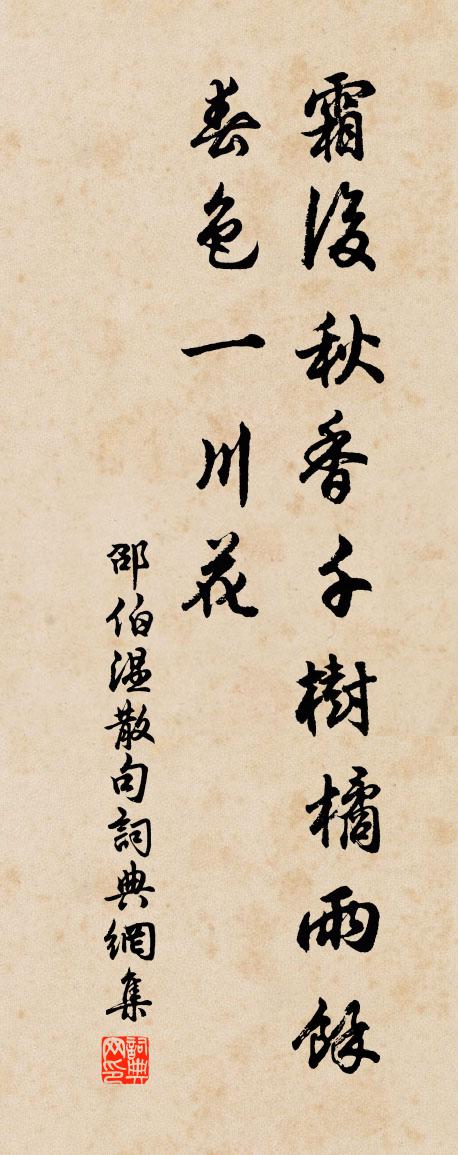 霜後秋香千樹橘雨餘
春色一川花
邵伯温散句詞典網集
詞典網印